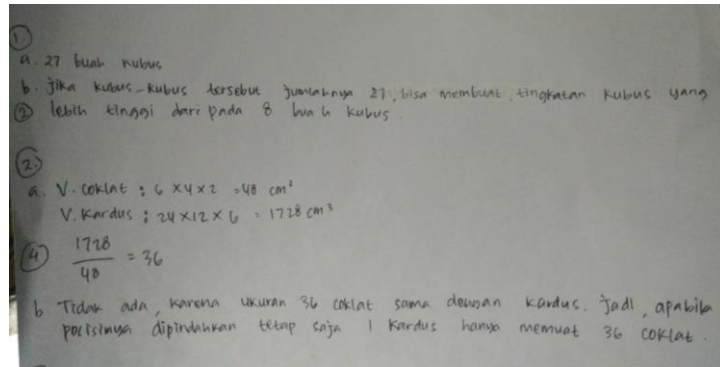 1.
a. 27 buah kubus
b. Jika kubus-kubus tersebut jumlahnya 27, bisa membuat tingkatan kubus yang
② lebih tinggi dari pada 8 buah kubus.
2.
a. V. coklat : 6 x 4 x 2 = 48 cm²
V. Kardus : 24 x 12 x 6 = 1728 cm³
④ 1728/48 = 36
b Tidak ada, karena ukuran 36 coklat sama dengan kardus. Jadi, apabila
posisinya dipindahkan tetap saja 1 kardus hanya memuat 36 coklat.